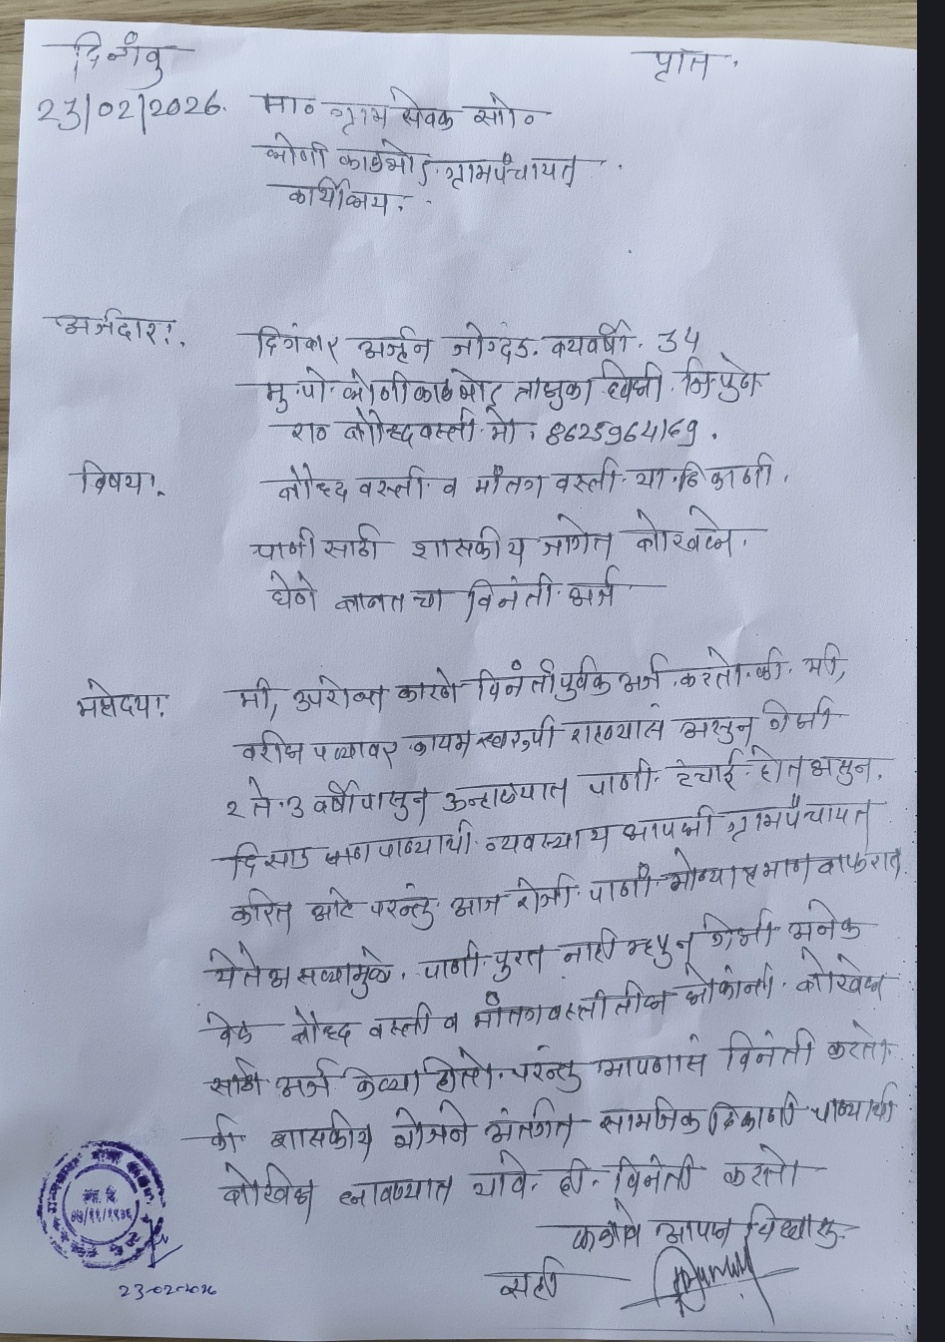 दिनांक
प्रति.
23/02/2026. मा० ग्राम सेवक सो०
लोणी काळभोर ग्रामपंचायत
कार्यालय.
अर्जदार:.
दिगंबर अर्जुन जोगदंड. वयवर्षी. 34
मु.पो. लोणी काळभोर तालुका हवेली. जि. पुणे
रा० बौध्द वस्ती. मो. 8625964169.
विषय:. बौध्द वस्ती व माँतग वस्ती. या. ठिकाणी.
पाणी साठी शासकीय जागेत बोरवेल.
घेणे बाबतचा विनंती अर्ज
महोदय:. मी, उपरोक्त कारणे विनंतीपुर्वक अर्ज. करतो. की. मी,
वरील पत्यावर कायम स्वरुपी राहण्यास असुन गेली
२ ते. ३ वर्षापासुन उन्हाळयात पाणी. टंचाई. होत असुन.
दिसाड पाण्याची. व्यवस्था आपली ग्रामपंचायत
करित आहे परंन्तु. आज रोजी. पाणी. वापरात.
येत असल्यामुळे. पाणी. पुरत नाही म्हणुन गेली अनेक
वेळ बौध्द वस्ती व माँतग वस्तीतील लोकांनी. बोरवेल
साठी अर्ज केल्या होतो. परंन्तु आपणास विनंती करतो.
की शासकीय योजने अंतर्गत सामजिक ठिकाणी पाण्याची
बोरवेल लावण्यात यावे. ही. विनंती करतो
कळावे आपल विश्वासु.
सही
23-02-2026